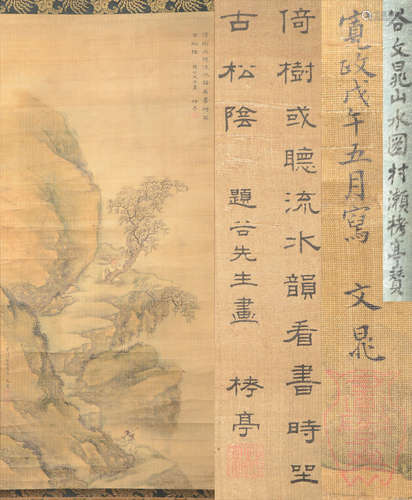 谷文晁山水図村瀬栲亭贊
寛政戊午五月寫 文晁
倚樹或聽流水韻看書時坐
古松陰 題谷先生畫 栲亭